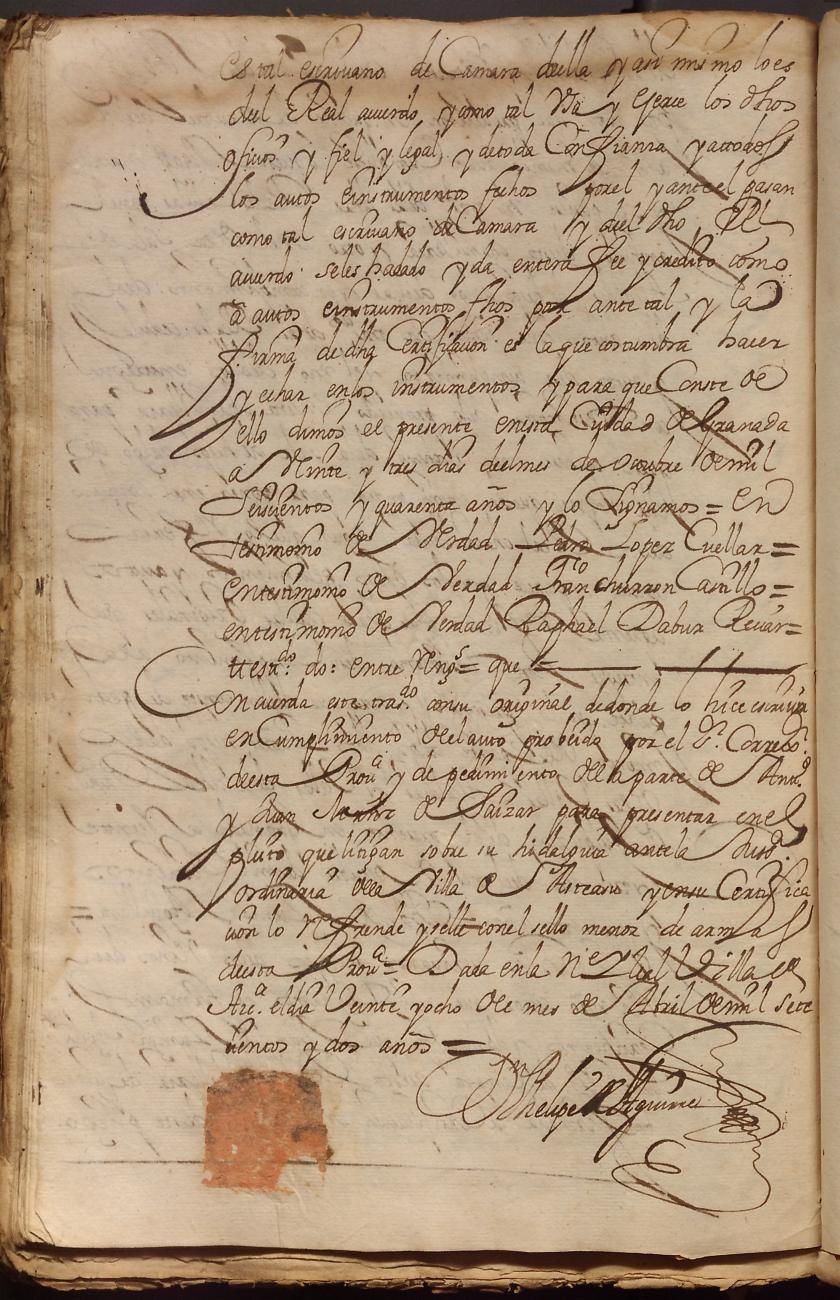 es tal escrivano de Camara della y asi mismo lo es
del Real acuerdo y como tal Vsa y exerce los dhos
oficios y fiel y legal y de toda Confianza y a todos
los autos einstrumentos fechos por el y ante el pasan
como tal escrivano de Camara y del dho Rl
acuerdo se les ha dado y da entera fee y credito como
a autos einstrumentos fhos por ante tal y la
firma de dha Certificacion es la que costumbra hacer
y echar en los instrumentos y para que Conste de
ello dimos el presente en esta Ciudad de Granada
a Veinte y tres dias del mes de octubre de mil
seiscientos y quarenta años y lo signamos = en
testimonio de Verdad Pedro Lopez Cuellar =
en testimonio de Verdad Franco churron Castillo =
en testimonio de Verdad Raphael Dabur Revar=
ttestdo do: entre Rengs = que =
Concuerda este trasdo con su original de donde lo hice escrivir
en Cumplimiento del auto probeido por el Sr. Corregor.
de esta Prova y de pedimiento de la parte de Anto.
y Juan de Saizar para presentar en el
pleito que litigan sobre su hidalguia ante la Justa.
ordinaria de la Villa de Asteasu y en su Certifica
cion lo Refrende y selle con el sello menor de armas
de esta Prova = Dada en la N. e L. Villa de
Azca. el dia Veinte y ocho de mes de Abril de mil sete
cientos y dos años =
Dn Phelipe de Aguirre